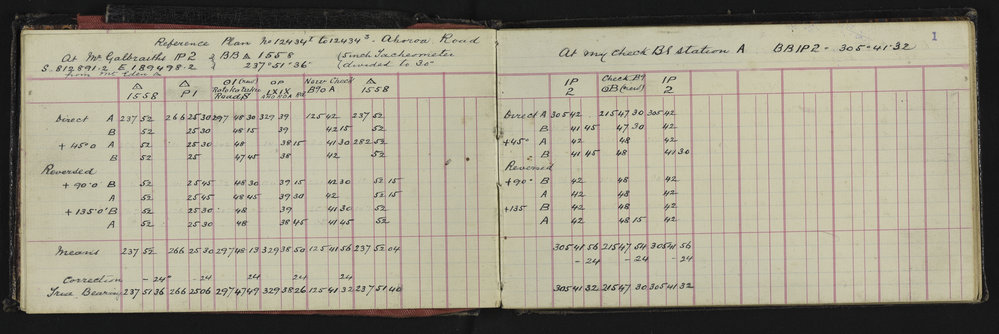 Reference Plan No 12434¹ to 12434³ - Ahoroa Road
At Mr Galbraiths IP2 } BB △ 1558 { 5 inch Tacheometer
S. 812891·2 E 189498·2 } 237°·51'·36" { divided to 30"
from Mt Eden △
△ 1558 △ P1 O1 (new) Road LXIX New Check B9 O A △ 1558
Direct A 237 52 266 25 30 297 48 30 329 39 125 42 237 52
B 52 25 30 48 15 39 42 15 52
+ 45°0 A 52 25 30 48 38 15 41 30 282 52
B 52 25 47 45 38 42 52
Reversed
+ 90°0' B 52 25 45 48 30 39 15 42 30 52 15
A 52 25 45 48 45 39 30 42 52 15
+ 135°0' B 52 25 30 48 39 41 30 52
A 52 25 30 48 38 45 41 45 52
Means 237 52 266 25 30 297 48 13 329 38 50 125 41 56 237 52 04
Correction - 24" - 24 24 24 24
True Bearing 237 51 36 266 25 06 297 47 49 329 38 26 125 41 32 237 51 40
1
At my Check B9 station A BB IP2 - 305-41-32
IP 2 Check B9 OB (new) IP 2
Direct A 305 42 215 47 30 305 42
B 41 45 47 30 42
+45° A 42 48 42
B 41 45 48 41 30
Reversed
+90° B 42 48 42
A 42 48 42
+135 B 42 48 42
A 42 48 15 42
305 41 56 215 47 54 305 41 56
- 24 - 24 - 24
305 41 32 215 47 30 305 41 32